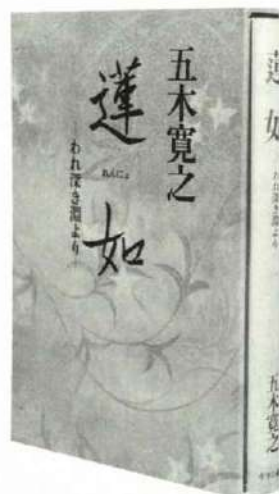 五木寛之
蓮如
れんにょ
われ深き淵より
蓮如
われ深き淵より
五木寛之